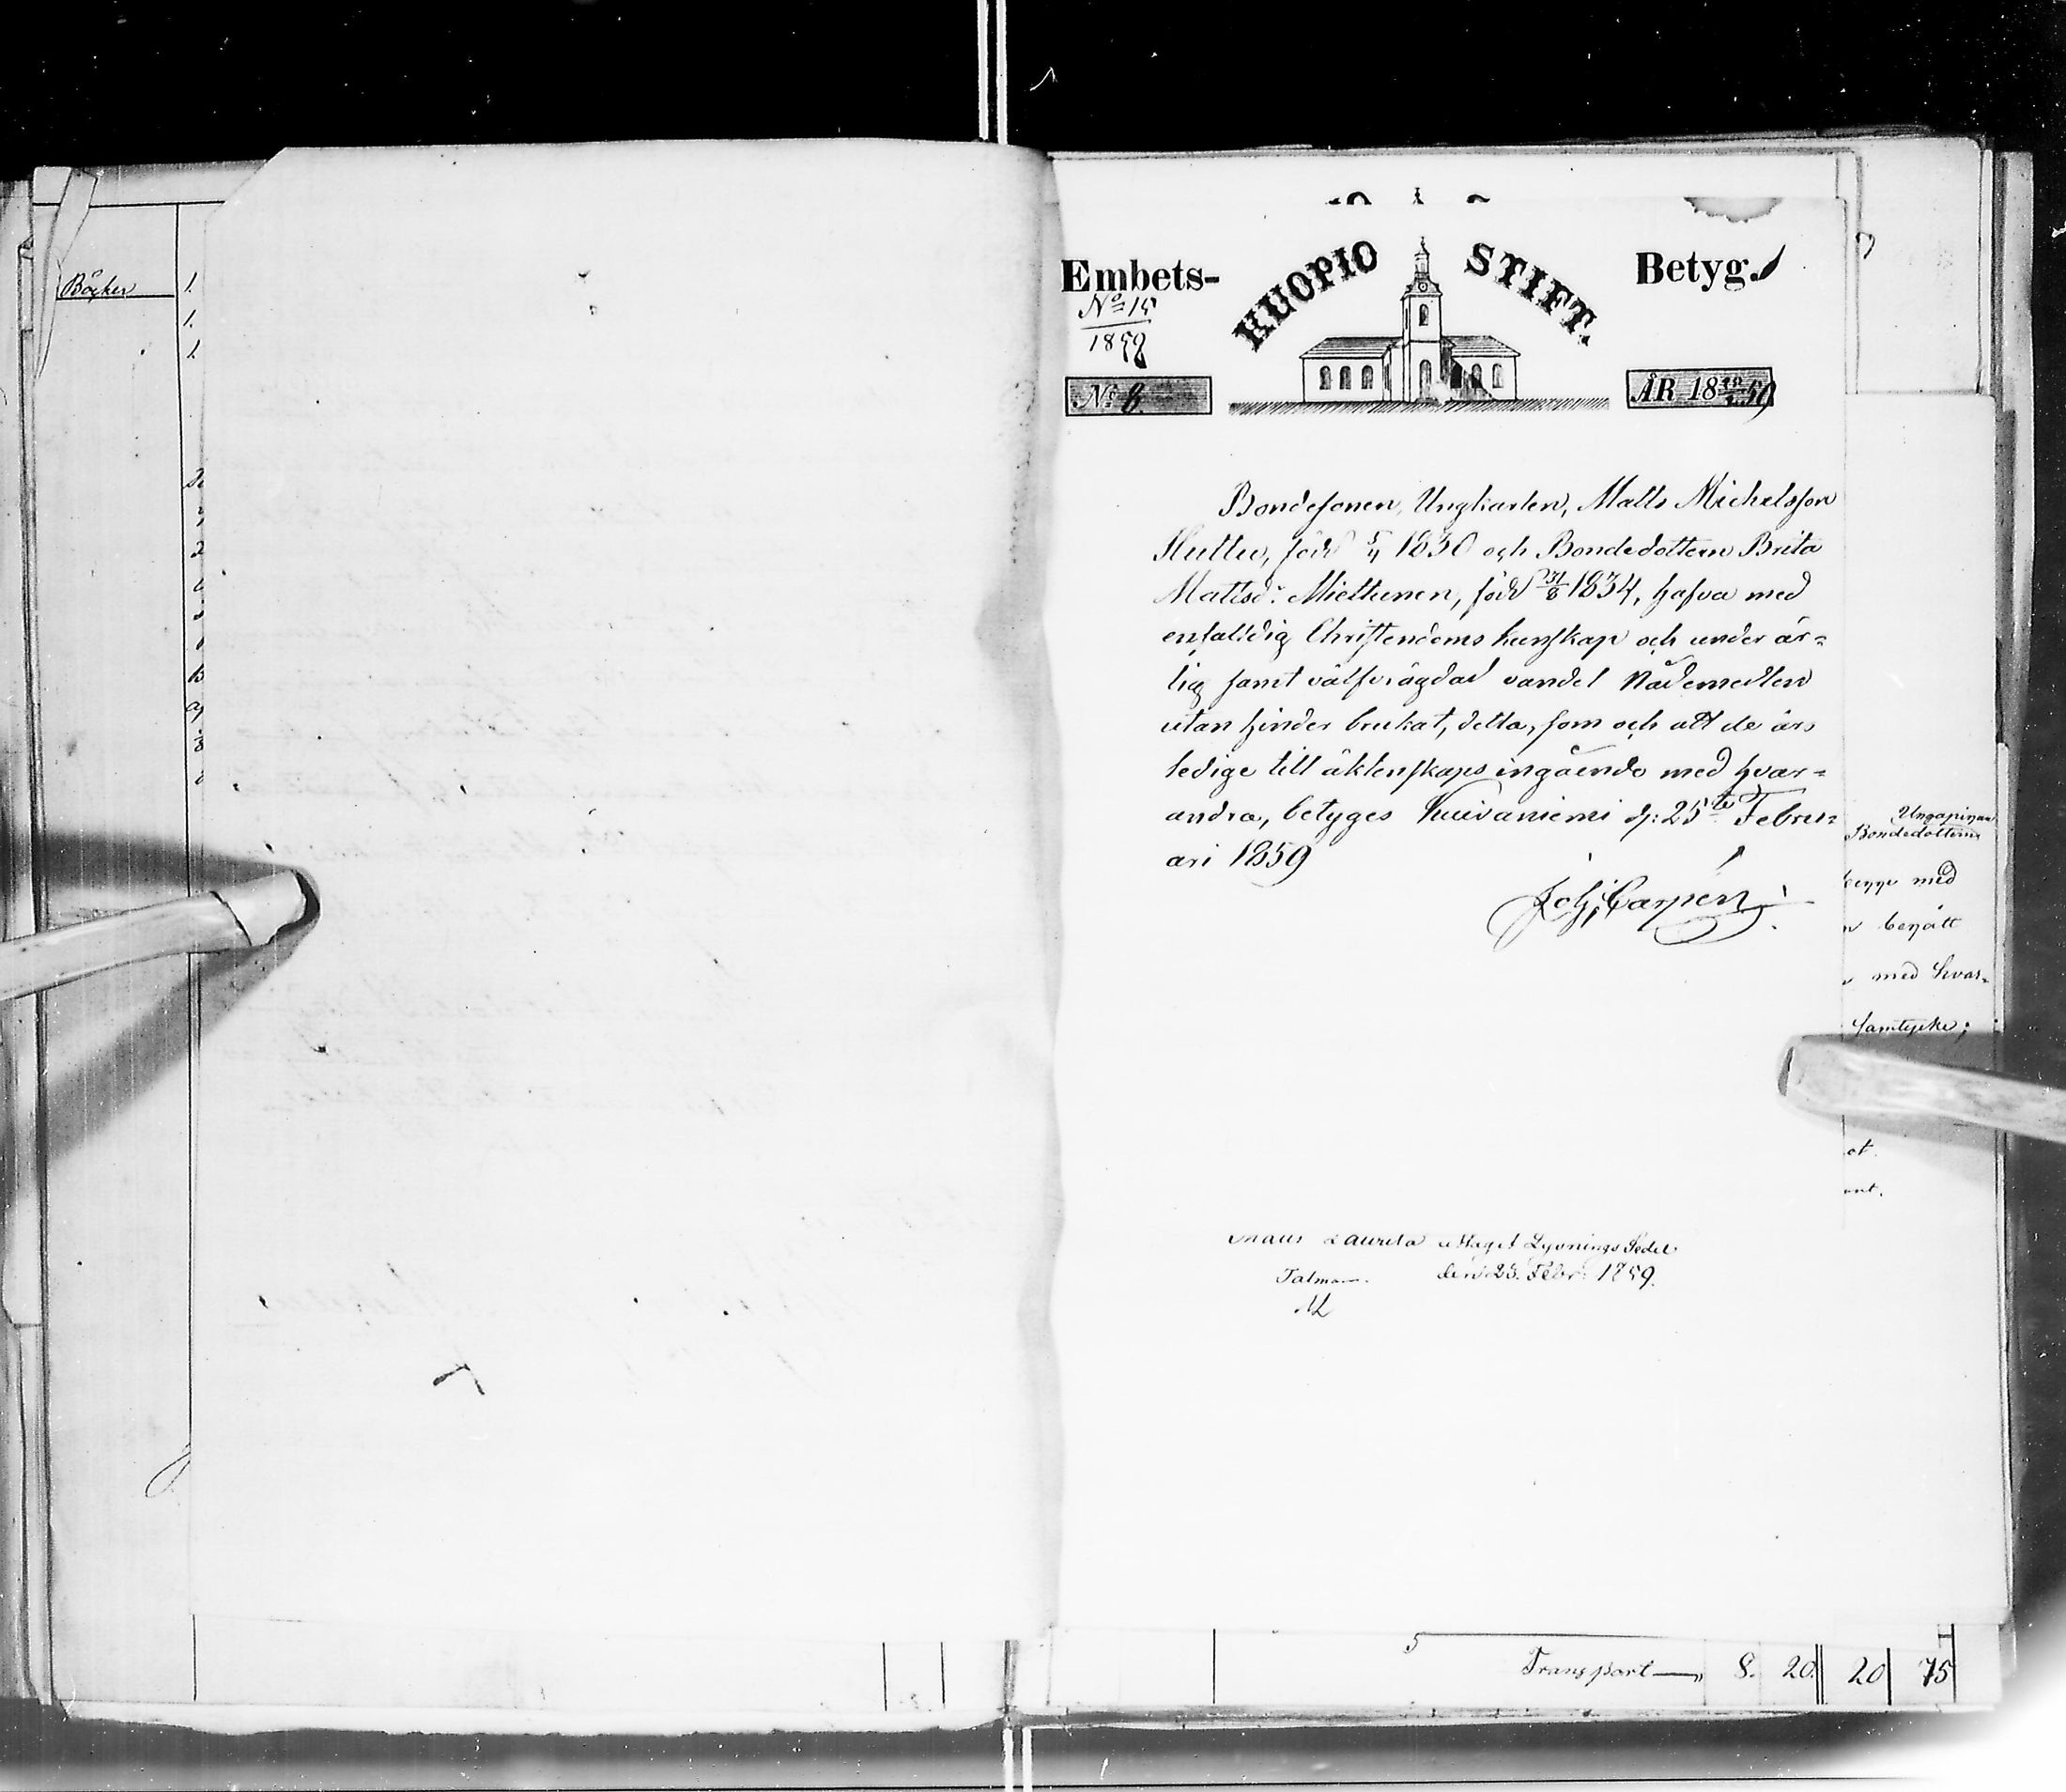 Böcker
1.
1.
1.
Embets-
KUOPIO STIFT.
Betyg.
No 15
1859
No 6.
ÅR 18 59
Bondesonen, Ungkarlen, Matts Michelsson
Huttu, född 5/4 1830 och Bondedottern Brita
Mattsd: Miettunen, född 31/8 1834, hafva med
enfalldig Christendoms kunskap och under är=
lig samt välfrägdad vandel Nådemedlen
utan hinder brukat, detta, som och att de äro
ledige till äktenskaps ingående med hvar=
andra, betyges Kuivaniemi d: 25te Febru=
ari 1859
Joh. Carpén
Ungapigan
Bondedottern
begge med
benått
med hvar=
samtycke;
Maus Laurila uttaget Lysnings Sedel
Talman. den 25. Febr: 1859.
ML
Transport — 8. 20. 20 75